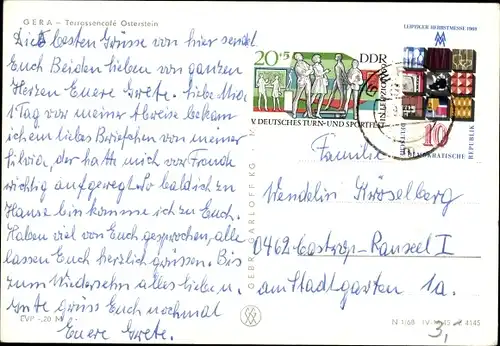 GERA – Terrassencafé Osterstein
Die besten Grüsse von hier sendet
Euch Beiden Lieben von ganzen
Herzen Euere Grete. Liebe
1 Tag vor meiner Abreise bekam
ich ein liebes Briefchen von meiner
Silvia, der hat mich vor Freude
richtig aufgeregt. So bald ich zu
Hause bin komme ich zu Euch.
Haben viel von Euch gesprochen, alle
lassen Euch herzlich grüssen. Bis
zum Wiedersehn alles liebe u.
gute grüss Euch nochmal
Euere Grete.
EVP -,20 M
GEBR. GARLOFF KG
20+5
DDR
V. DEUTSCHES TURN- UND SPORTFEST
LEIPZIGER HERBSTMESSE 1969
10
DEUTSCHE
DEMOKRATISCHE
REPUBLIK
Familie
Wendelin Kröselberg
0462 Castrop-Rauxel I
am Stadtgarten 1a.
N 1/68 IV-14-45 4145
3,